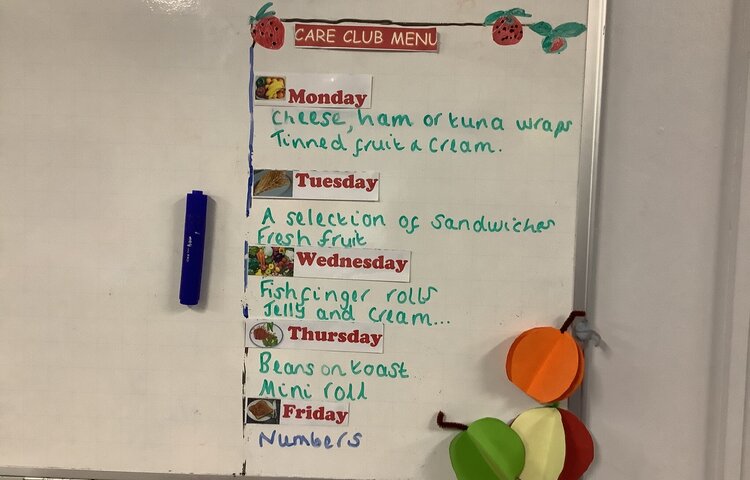 CARE CLUB MENU
Monday
Cheese, ham or tuna wraps
Tinned fruit & Cream.
Tuesday
A selection of sandwiches
Fresh fruit
Wednesday
Fishfinger rolls
Jelly and cream...
Thursday
Beans on toast
Mini roll
Friday
Numbers